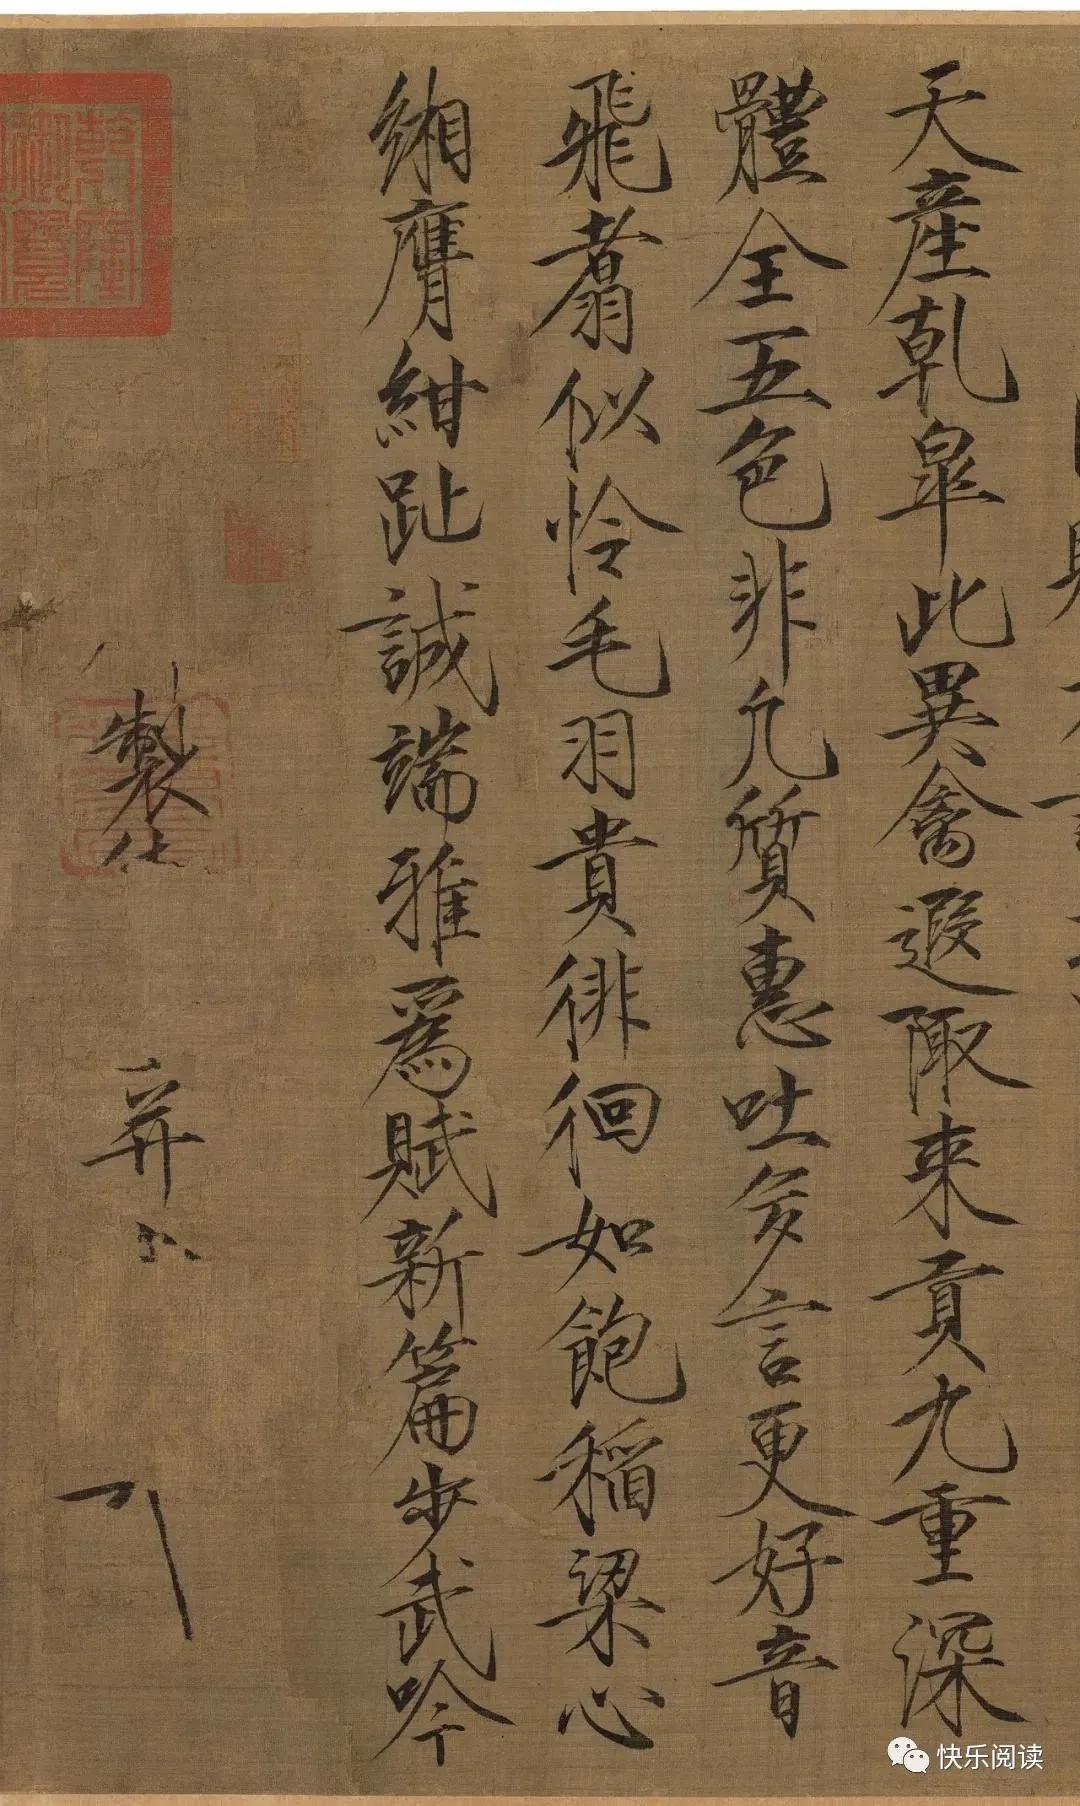 天產乾皐此異禽遐陬来貢九重深
體全五色非凢質惠吐多言更好音
飛翥似怜毛羽貴徘徊如飽稲粱心
緗膺紺趾誠端雅爲賦新篇步武吟
製
乾隆御覽之寶
快乐阅读